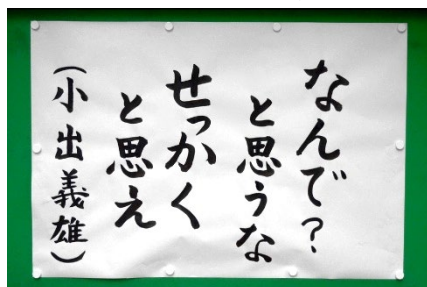 なんで？
と思うな
せっかく
と思え
（小出義雄）